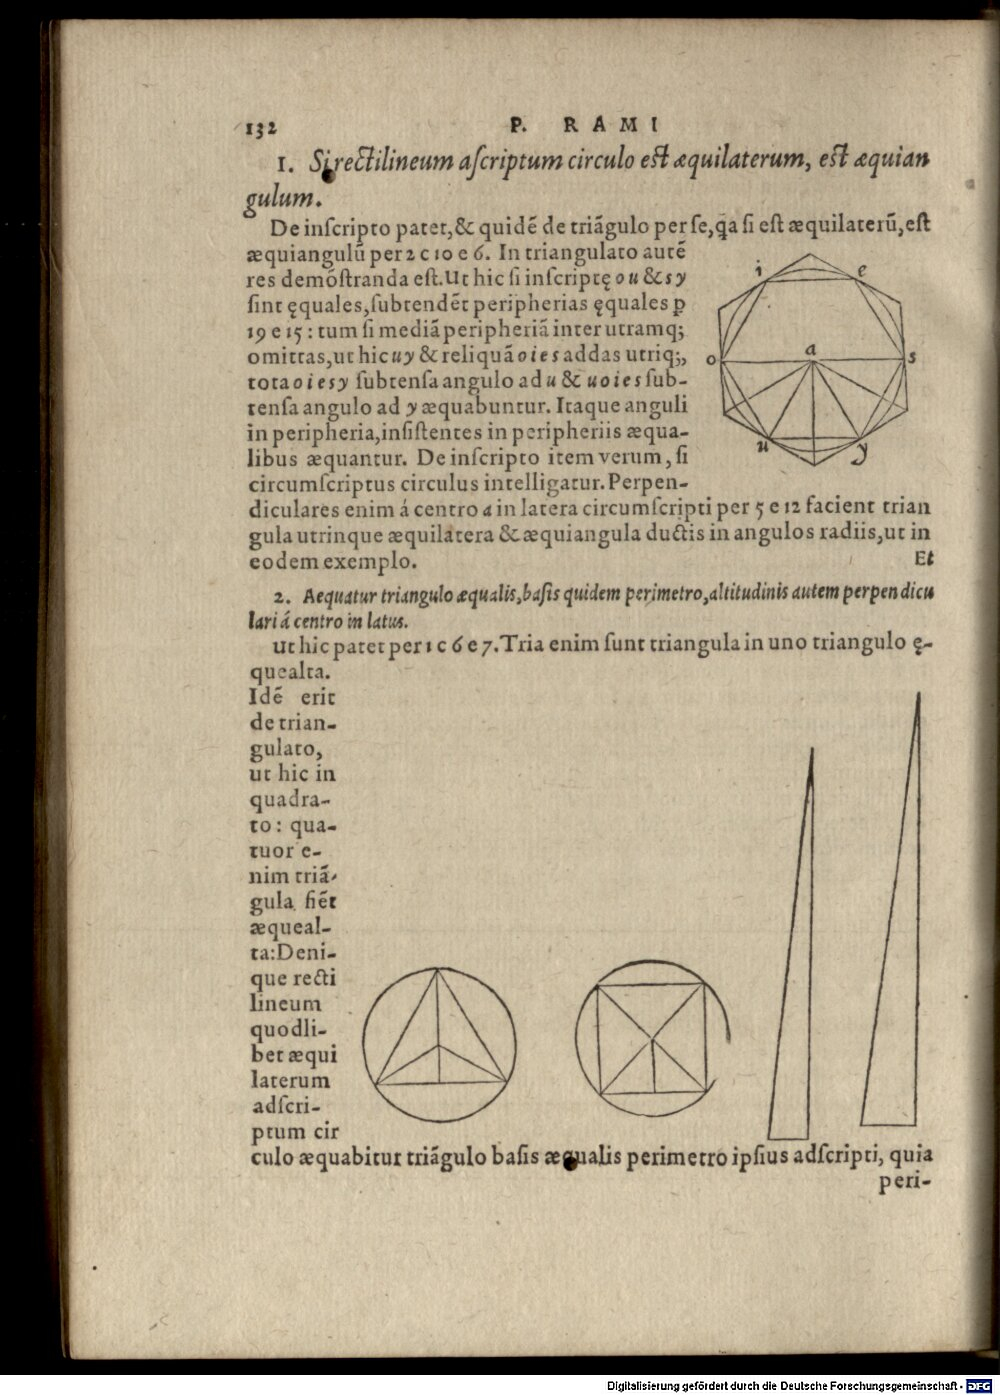 132
P. RAMI
1. Si rectilineum aſcriptum circulo eſt æquilaterum, eſt æquian
gulum.
De inſcripto patet,& quidē de triāgulo per ſe,q̃a ſi eſt æquilaterū,eſt
æquiangulū per 2 c 10 e 6. In triangulato autē
res demōſtranda eſt.Ut hic ſi inſcriptę o u & s y
ſint ęquales,ſubtendēt peripherias ęquales ꝑ
19 e 15 : tum ſi mediā peripheriā inter utramq;
omittas,ut hic u y & reliquā o i e s addas utriq;,
tota o i e s y ſubtenſa angulo ad u & u o i e s ſub-
tenſa angulo ad y æquabuntur. Itaque anguli
in peripheria,inſiſtentes in peripheriis æqua-
libus æquantur. De inſcripto item verum, ſi
circumſcriptus circulus intelligatur. Perpen-
diculares enim á centro a in latera circumſcripti per 5 e 12 facient trian
gula utrinque æquilatera & æquiangula ductis in angulos radiis,ut in
eodem exemplo.
Et
i
e
o
a
s
u
y
2. Aequatur triangulo æqualis,baſis quidem perimetro,altitudinis autem perpendicu
lari á centro in latus.
Ut hic patet per 1 c 6 e 7. Tria enim ſunt triangula in uno triangulo ę-
quealta.
Idē erit
de trian-
gulato,
ut hic in
quadra-
to : qua-
tuor e-
nim triā-
gula fiēt
æqueal-
ta:Deni-
que recti
lineum
quodli-
bet æqui
laterum
adſcri-
ptum cir
culo æquabitur triāgulo baſis æqualis perimetro ipſius adſcripti, quia
peri-
Digitalisierung gefördert durch die Deutsche Forschungsgemeinschaft - DFG